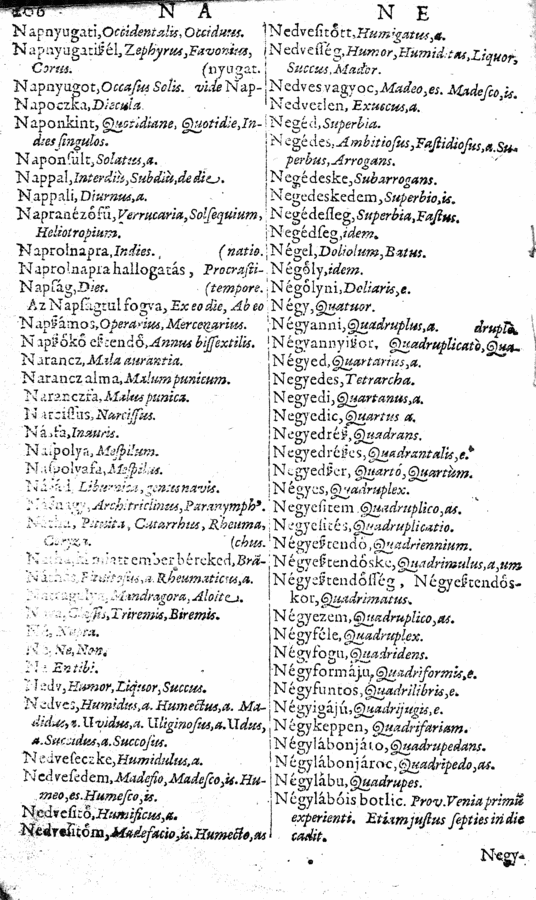 N A
N E
Napnyugati, Occidentalis, Occiduus.
Napnyugatißél, Zephyrus, Favonius,
Corus. (nyugat.
Napnyugot, Occaſus Solis. vide Nap-
Napoczka, Diecula.
Naponkint, Quotidiane, Quotidie, In-
dies ſingulos.
Naponſült, Solatus, a.
Nappal, Interdiù, Subdiù, de die.
Nappali, Diurnus, a.
Napranézófű, Verrucaria, Solſequium,
Heliotropium.
Naprolnapra, Indies. (natio.
Naprolnapra hallogatás, Procraſti-
Napſág, Dies. (tempore.
Az Napſágtul fogva, Ex eo die, Ab eo
Napßámos, Operarius, Mercenarius.
Napßókó eßtendó, Annus biſſextilis.
Narancz, Mala aurantia.
Narancz alma, Malum punicum.
Naranczfa, Malus punica.
Narciſſus, Narciſſus.
Náſfa, Inauris.
Naſpolya, Meſpilum.
Naſpolyafa, Meſpilus.
Liburnica, genus navis.
Architriclinus, Paranymphꝰ.
Nátha, Pituita, Catarrhus, Rheuma,
Coryza. (chus.
ember béreked, Brã-
Pituitoſus, a. Rheumaticus, a.
Mandragora, Aloites.
Claſſis, Triremis, Biremis.
Ne, Non.
En tibi.
Nedv, Humor, Liquor, Succus.
Nedves, Humidus, a. Humectus, a. Ma-
didus, a. Uvidus, a. Uliginoſus, a. Udus,
a. Succidus, a. Succoſus.
Nedveſeczke, Humidulus, a.
Nedveſedem, Madeſio, Madeſco, is. Hu-
meo, es. Humeſco, is.
Nedveſitő, Humificus, a.
Nedveſitóm, Madefacio, is. Humecto, as
Nedveſitőtt, Humigatus, a.
Nedveſſég, Humor, Humiditas, Liquor,
Succus, Mador.
Nedves vagyoc, Madeo, es. Madeſco, is.
Nedvetlen, Exuccus, a.
Negéd, Superbia.
Negédes, Ambitioſus, Faſtidioſus, a. Su-
perbus, Arrogans.
Negédeske, Subarrogans.
Negedeskedem, Superbio, is.
Negédeſſeg, Superbia, Faſtus.
Negédſeg, idem.
Négel, Doliolum, Batus.
Négóly, idem.
Négólyni, Doliaris, e.
Négy, Quatuor.
Négyanni, Quadruplus, a. druplo.
Négyannyißor, Quadruplicatò, Qua-
Négyed, Quartarius, a.
Negyedes, Tetrarcha.
Negyedi, Quartanus, a.
Negyedic, Quartus a.
Negyedréß, Quadrans.
Negyedréßes, Quadrantalis, e.
Negyedßer, Quartó, Quartùm.
Négyes, Quadruplex.
Negyeſitem Quadruplico, as.
Negyeſités, Quadruplicatio.
Négyeßtendó, Quadriennium.
Négyeßtendóske, Quadrimulus, a, um
Négyeßtendóſſég, Négyeßtendós-
kor, Quadrimatus.
Négyezem, Quadruplico, as.
Négyféle, Quadruplex.
Négyfogu, Quadridens.
Négyformáju, Quadriformis, e.
Négyfuntos, Quadrilibris, e.
Négyigájú, Quadrijugis, e.
Négykeppen, Quadrifariam.
Négylábonjáto, Quadrupedans.
Négylábonjároc, Quadripedo, as.
Négylábu, Quadrupes.
Négylábóis botlic. Prov. Venia primũ
experienti. Etiam juſtus ſepties in die
cadit.
Negy-